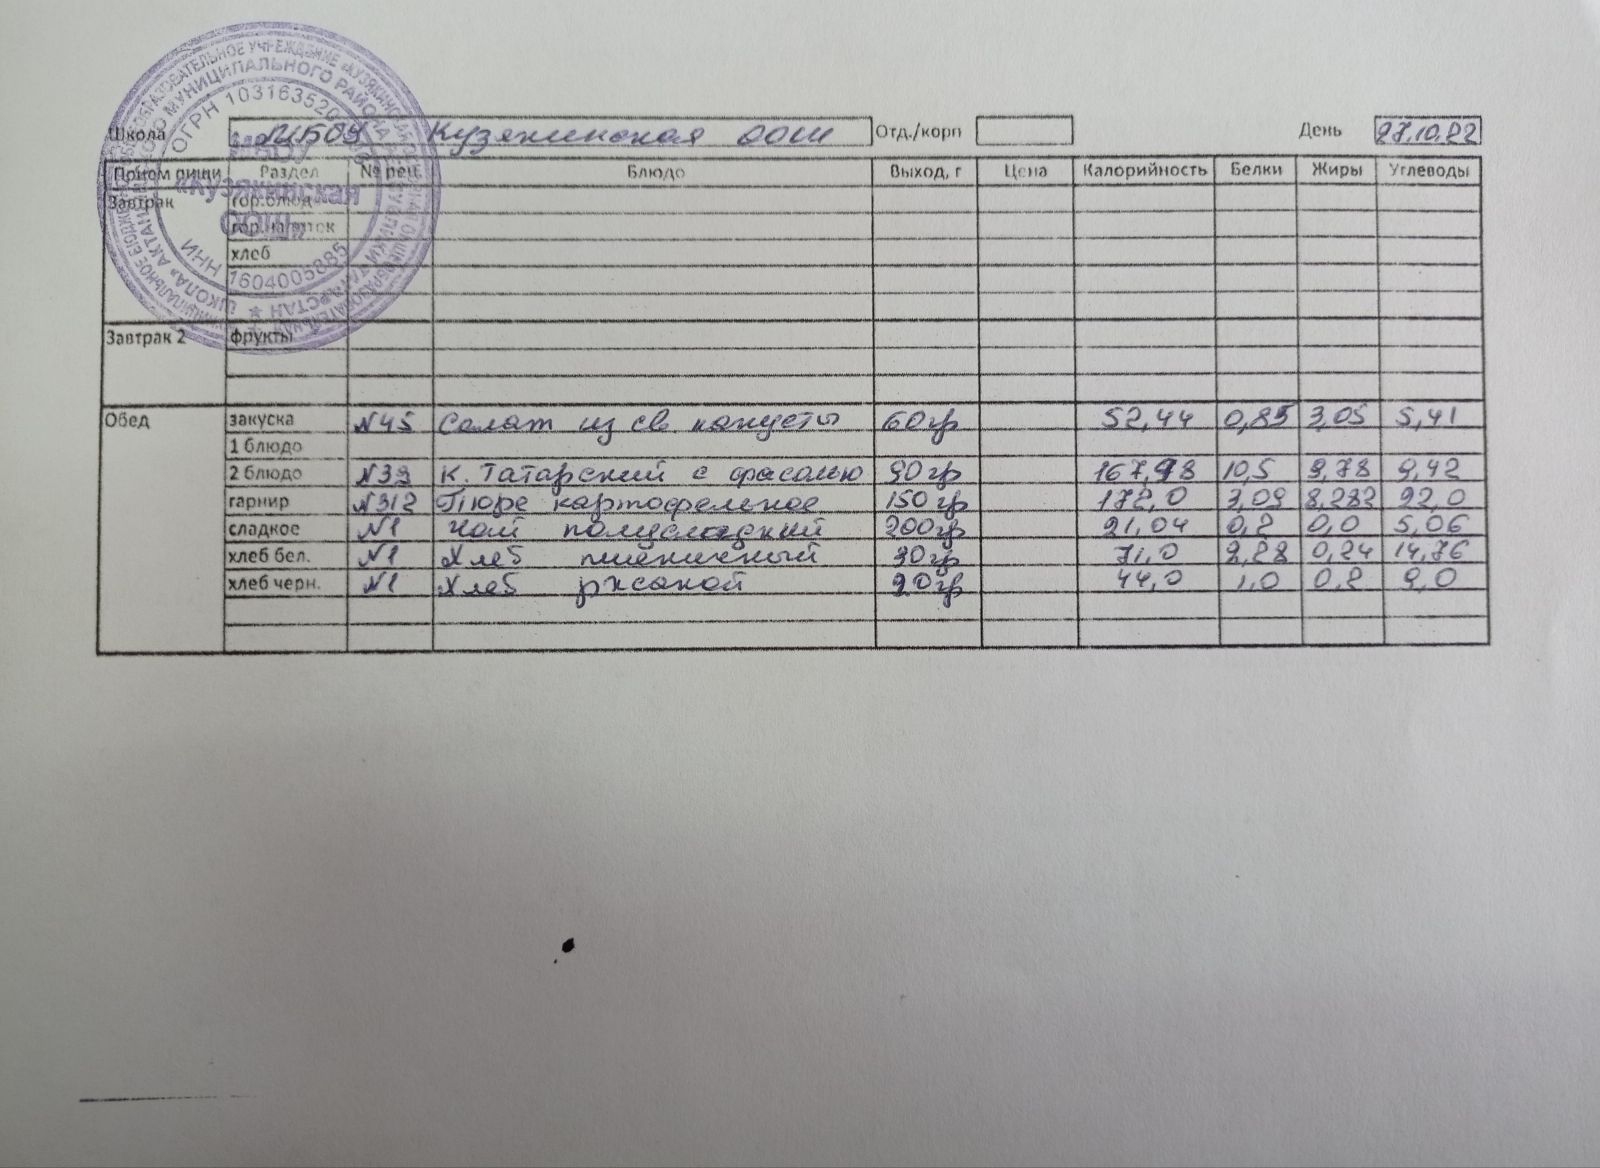 Школа МБОУ Кузякинская ООШ Отд./корп День 27.10.22
Прием пищи Раздел № рец. Блюдо Выход, г Цена Калорийность Белки Жиры Углеводы
Завтрак гор.блюдо
гор.напиток
хлеб
Завтрак 2 фрукты
Обед закуска №45 Салат из св капусты 60гр 52,44 0,85 3,05 5,41
1 блюдо
2 блюдо №39 К. Татарский с фасолью 90гр 167,98 10,5 9,78 9,42
гарнир №312 Пюре картофельное 150гр 172,0 3,09 8,282 22,0
сладкое №1 Чай полусладкий 200гр 21,04 0,2 0,0 5,06
хлеб бел. №1 Хлеб пшеничный 30гр 71,0 2,28 0,24 14,76
хлеб черн. №1 Хлеб ржаной 20гр 44,0 1,0 0,2 9,0
ОГРН 10316352
«Кузякинская
ООШ»
ИНН 1604005885